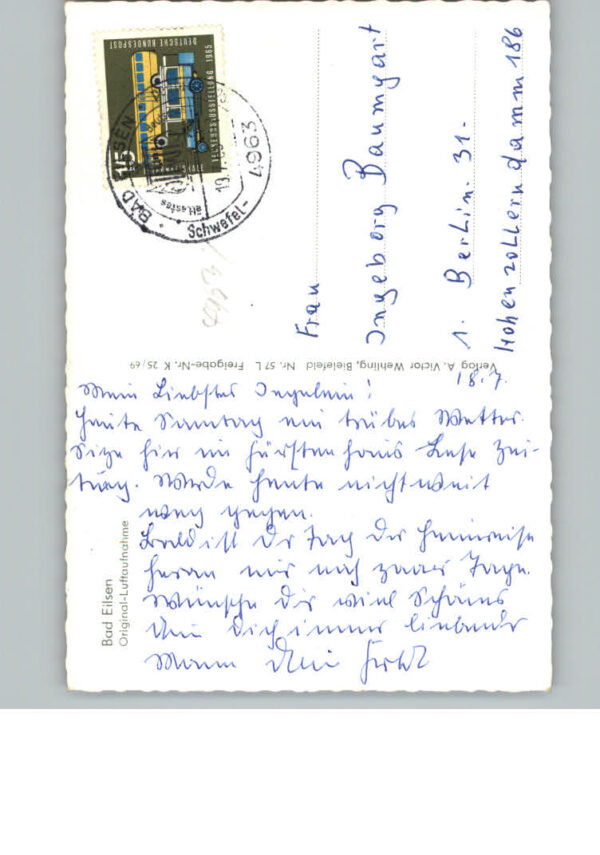 DEUTSCHE BUNDESPOST
VERKEHRSAUSSTELLUNG 1965
15
BAD EILSEN
ältestes
Schwefel-
4963
Frau
Ingeborg Baumgart
1. Berlin. 31.-
Hohenzollerndamm 186
Verlag A. Victor Wehling, Bielefeld Nr. 57 L Freigabe-Nr. K 25/69
Bad Eilsen
Original-Luftaufnahme
18.7.
Mein Liebstes Ingelein!
Heute Sonntag ein trübes Wetter.
Sitze hier im Fürstenhaus Lese Zei-
tung. Werde heute nicht weit
weg gehen.
Bald ist der Tag der Heimreise
nur noch Tage.
Wünsche Dir viel Schönes
Dein Dich immer liebender
Mann Dein